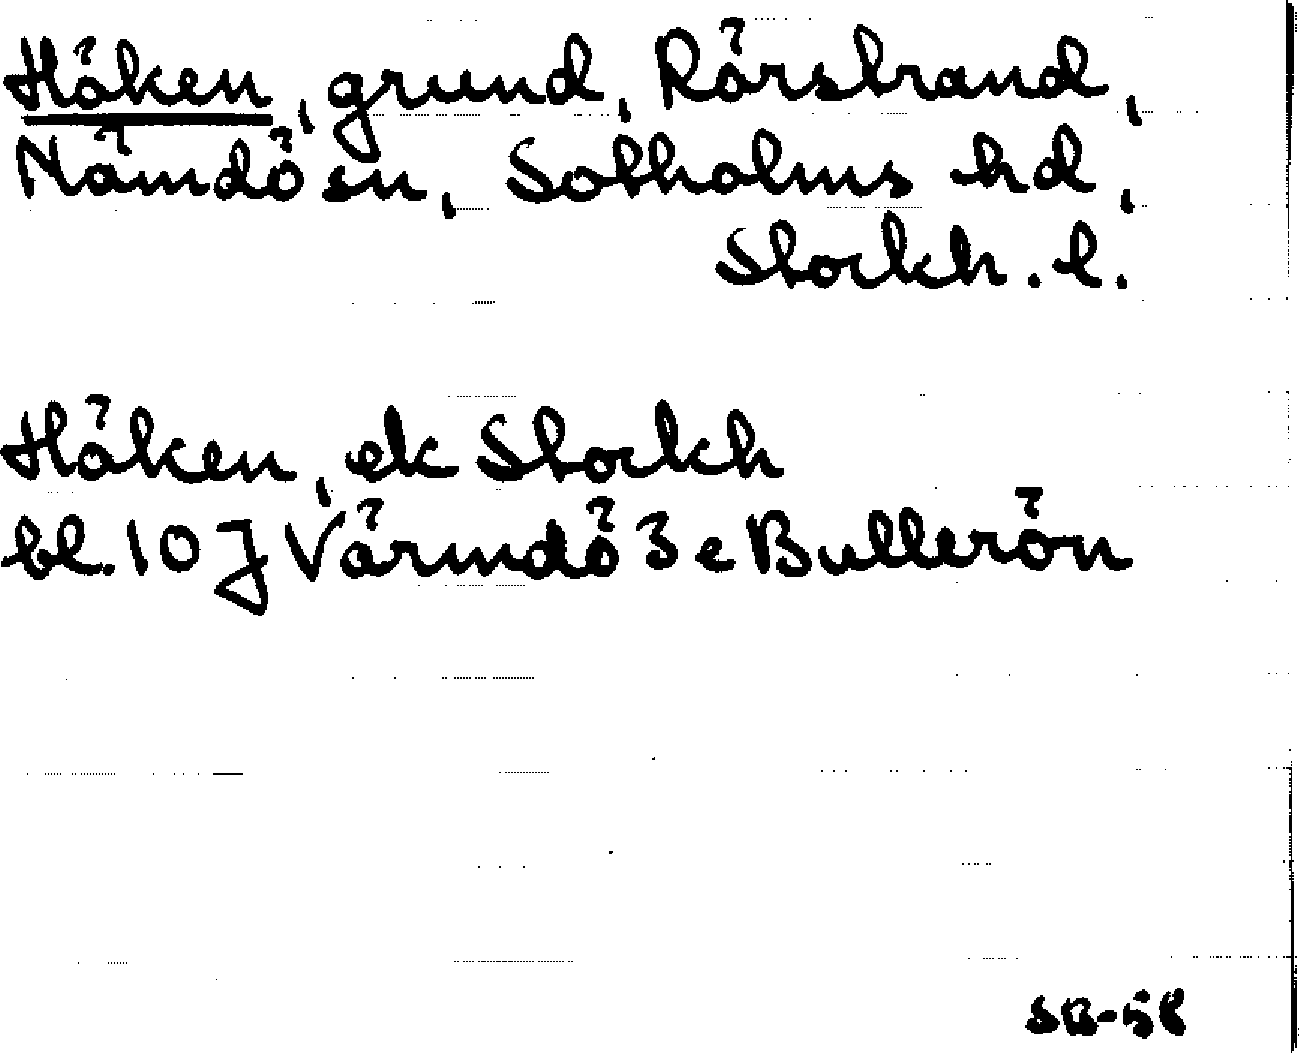 Höken, grund, Rörstrand,
Nämdö sn, Sotholms hd,
Stockh. l.
Höken, ek Stockh
bl. 10 J Värmdö 3 e Bullerön
SB-58